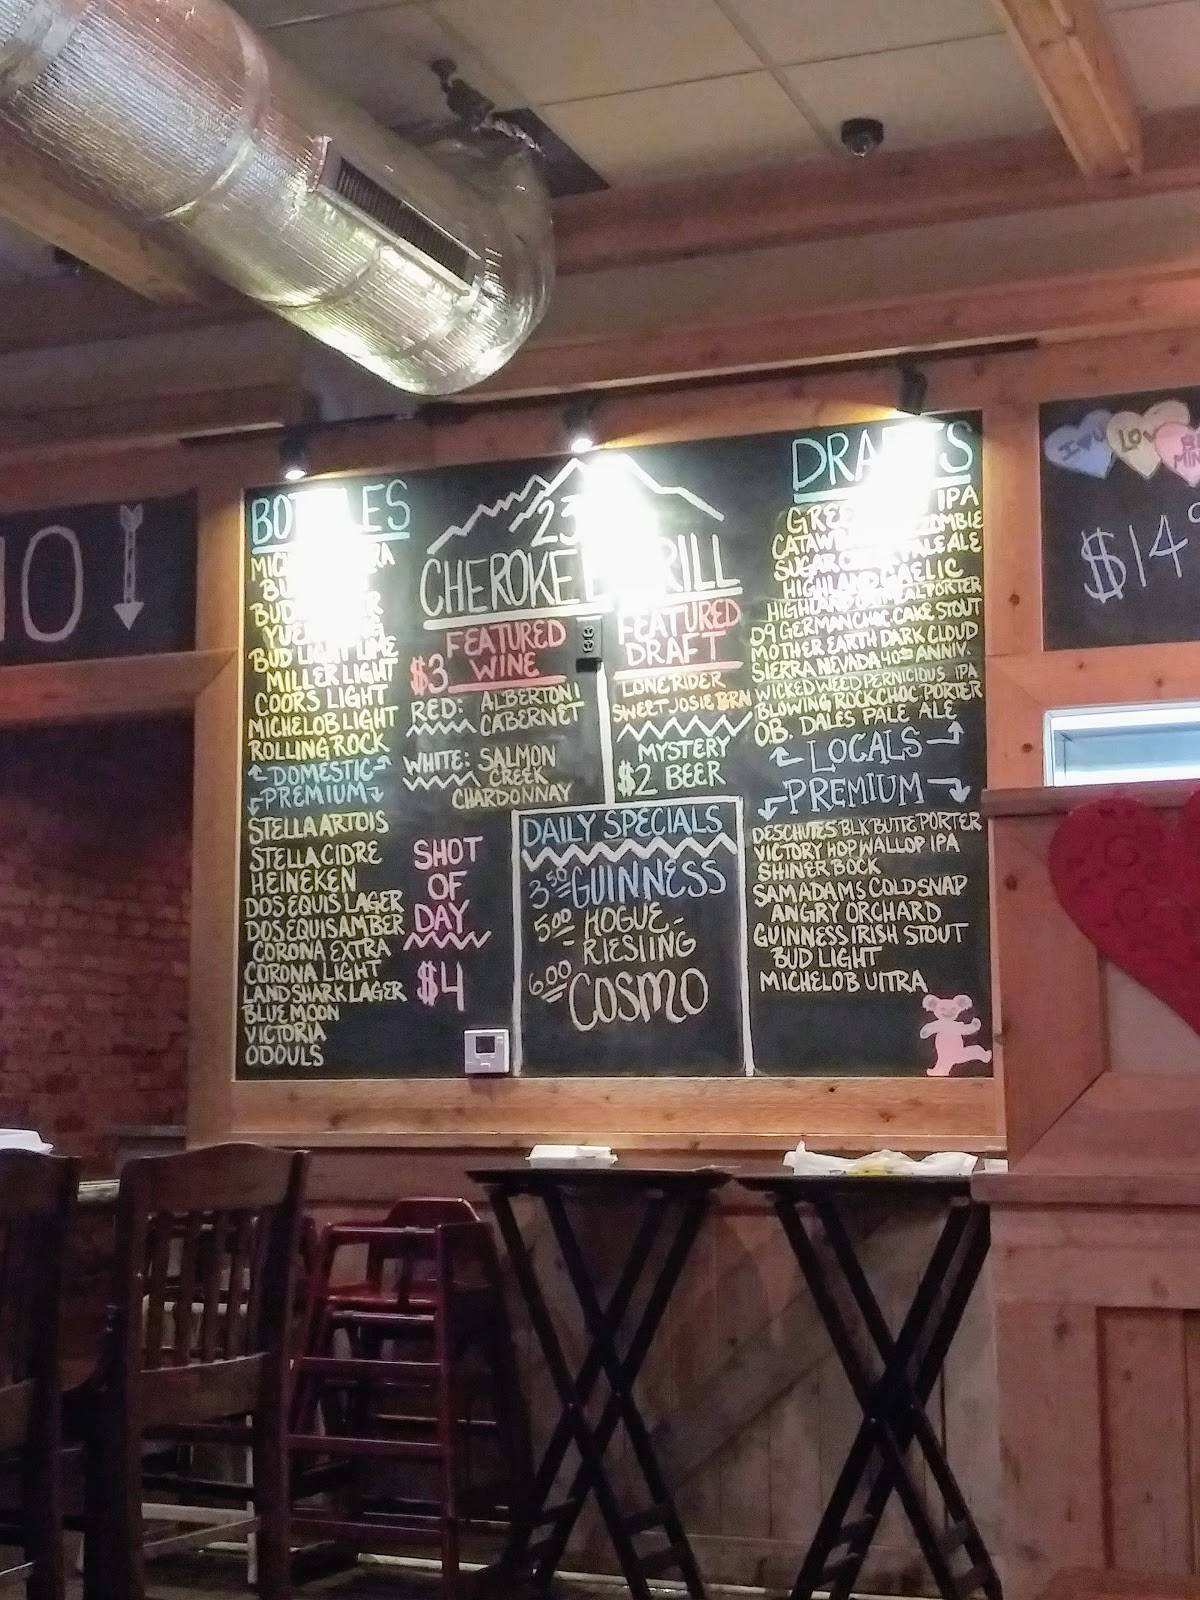 10
BOTTLES
BUD LIGHT LIME
MILLER LIGHT
COORS LIGHT
MICHELOB LIGHT
ROLLING ROCK
DOMESTIC
PREMIUM
STELLA ARTOIS
STELLA CIDRE
HEINEKEN
DOS EQUIS LAGER
DOS EQUIS AMBER
CORONA EXTRA
CORONA LIGHT
LAND SHARK LAGER
BLUE MOON
VICTORIA
ODOULS
23
CHEROKEE GRILL
FEATURED
$3 WINE
RED: ALBERTONI
CABERNET
WHITE: SALMON
CREEK
CHARDONNAY
SHOT
OF
DAY
$4
FEATURED
DRAFT
LONERIDER
SWEET JOSIE BRN
MYSTERY
$2 BEER
DAILY SPECIALS
3.50 GUINNESS
5.00 HOGUE -
- RIESLING
6.00 COSMO
DRAFTS
IPA
PALE ALE
HIGHLAND GAELIC
HIGHLAND OATMEAL PORTER
D9 GERMAN CHOC. CAKE STOUT
MOTHER EARTH DARK CLOUD
SIERRA NEVADA 40TH ANNIV.
WICKED WEED PERNICIOUS IPA
BLOWING ROCK CHOC PORTER
OB. DALES PALE ALE
LOCALS
PREMIUM
DESCHUTES BLK BUTTE PORTER
VICTORY HOP WALLOP IPA
SHINER BOCK
SAM ADAMS COLD SNAP
ANGRY ORCHARD
GUINNESS IRISH STOUT
BUD LIGHT
MICHELOB ULTRA
I ♥ U
$14